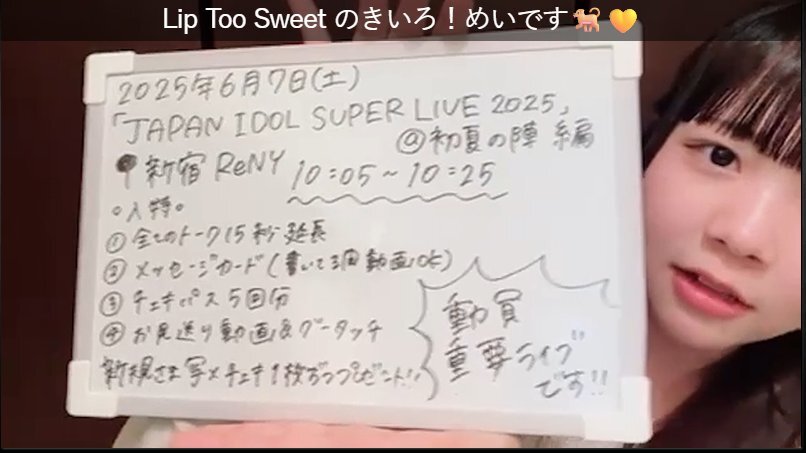 Lip Too Sweet のきいろ！めいです🐕💛
2025年6月7日(土)
「JAPAN IDOL SUPER LIVE 2025」
@初夏の陣 編
新宿 ReNY 10:05～10:25
◦入特◦
① 全てのトーク15秒延長
② メッセージカード(書いてる間動画OK)
③ チェキパス5回分
④ お見送り動画&グータッチ
新規さま写メチェキ1枚ずつプレゼント!!
動員
重要ライブ
です!!